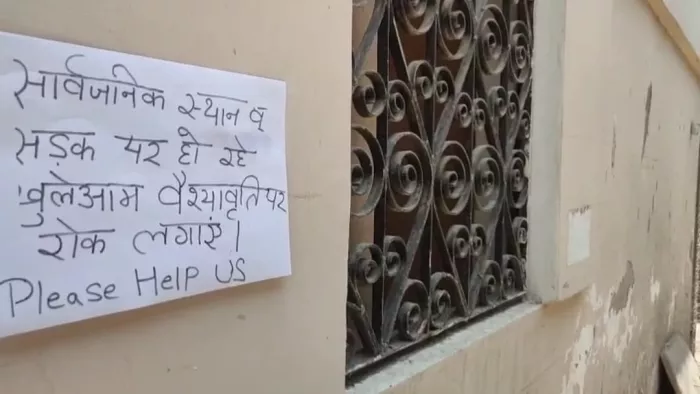 सार्वजनिक स्थान व्
सड़क पर हो रहे
खुलेआम वैश्यावृति पर
रोक लगाएं।
Please Help US